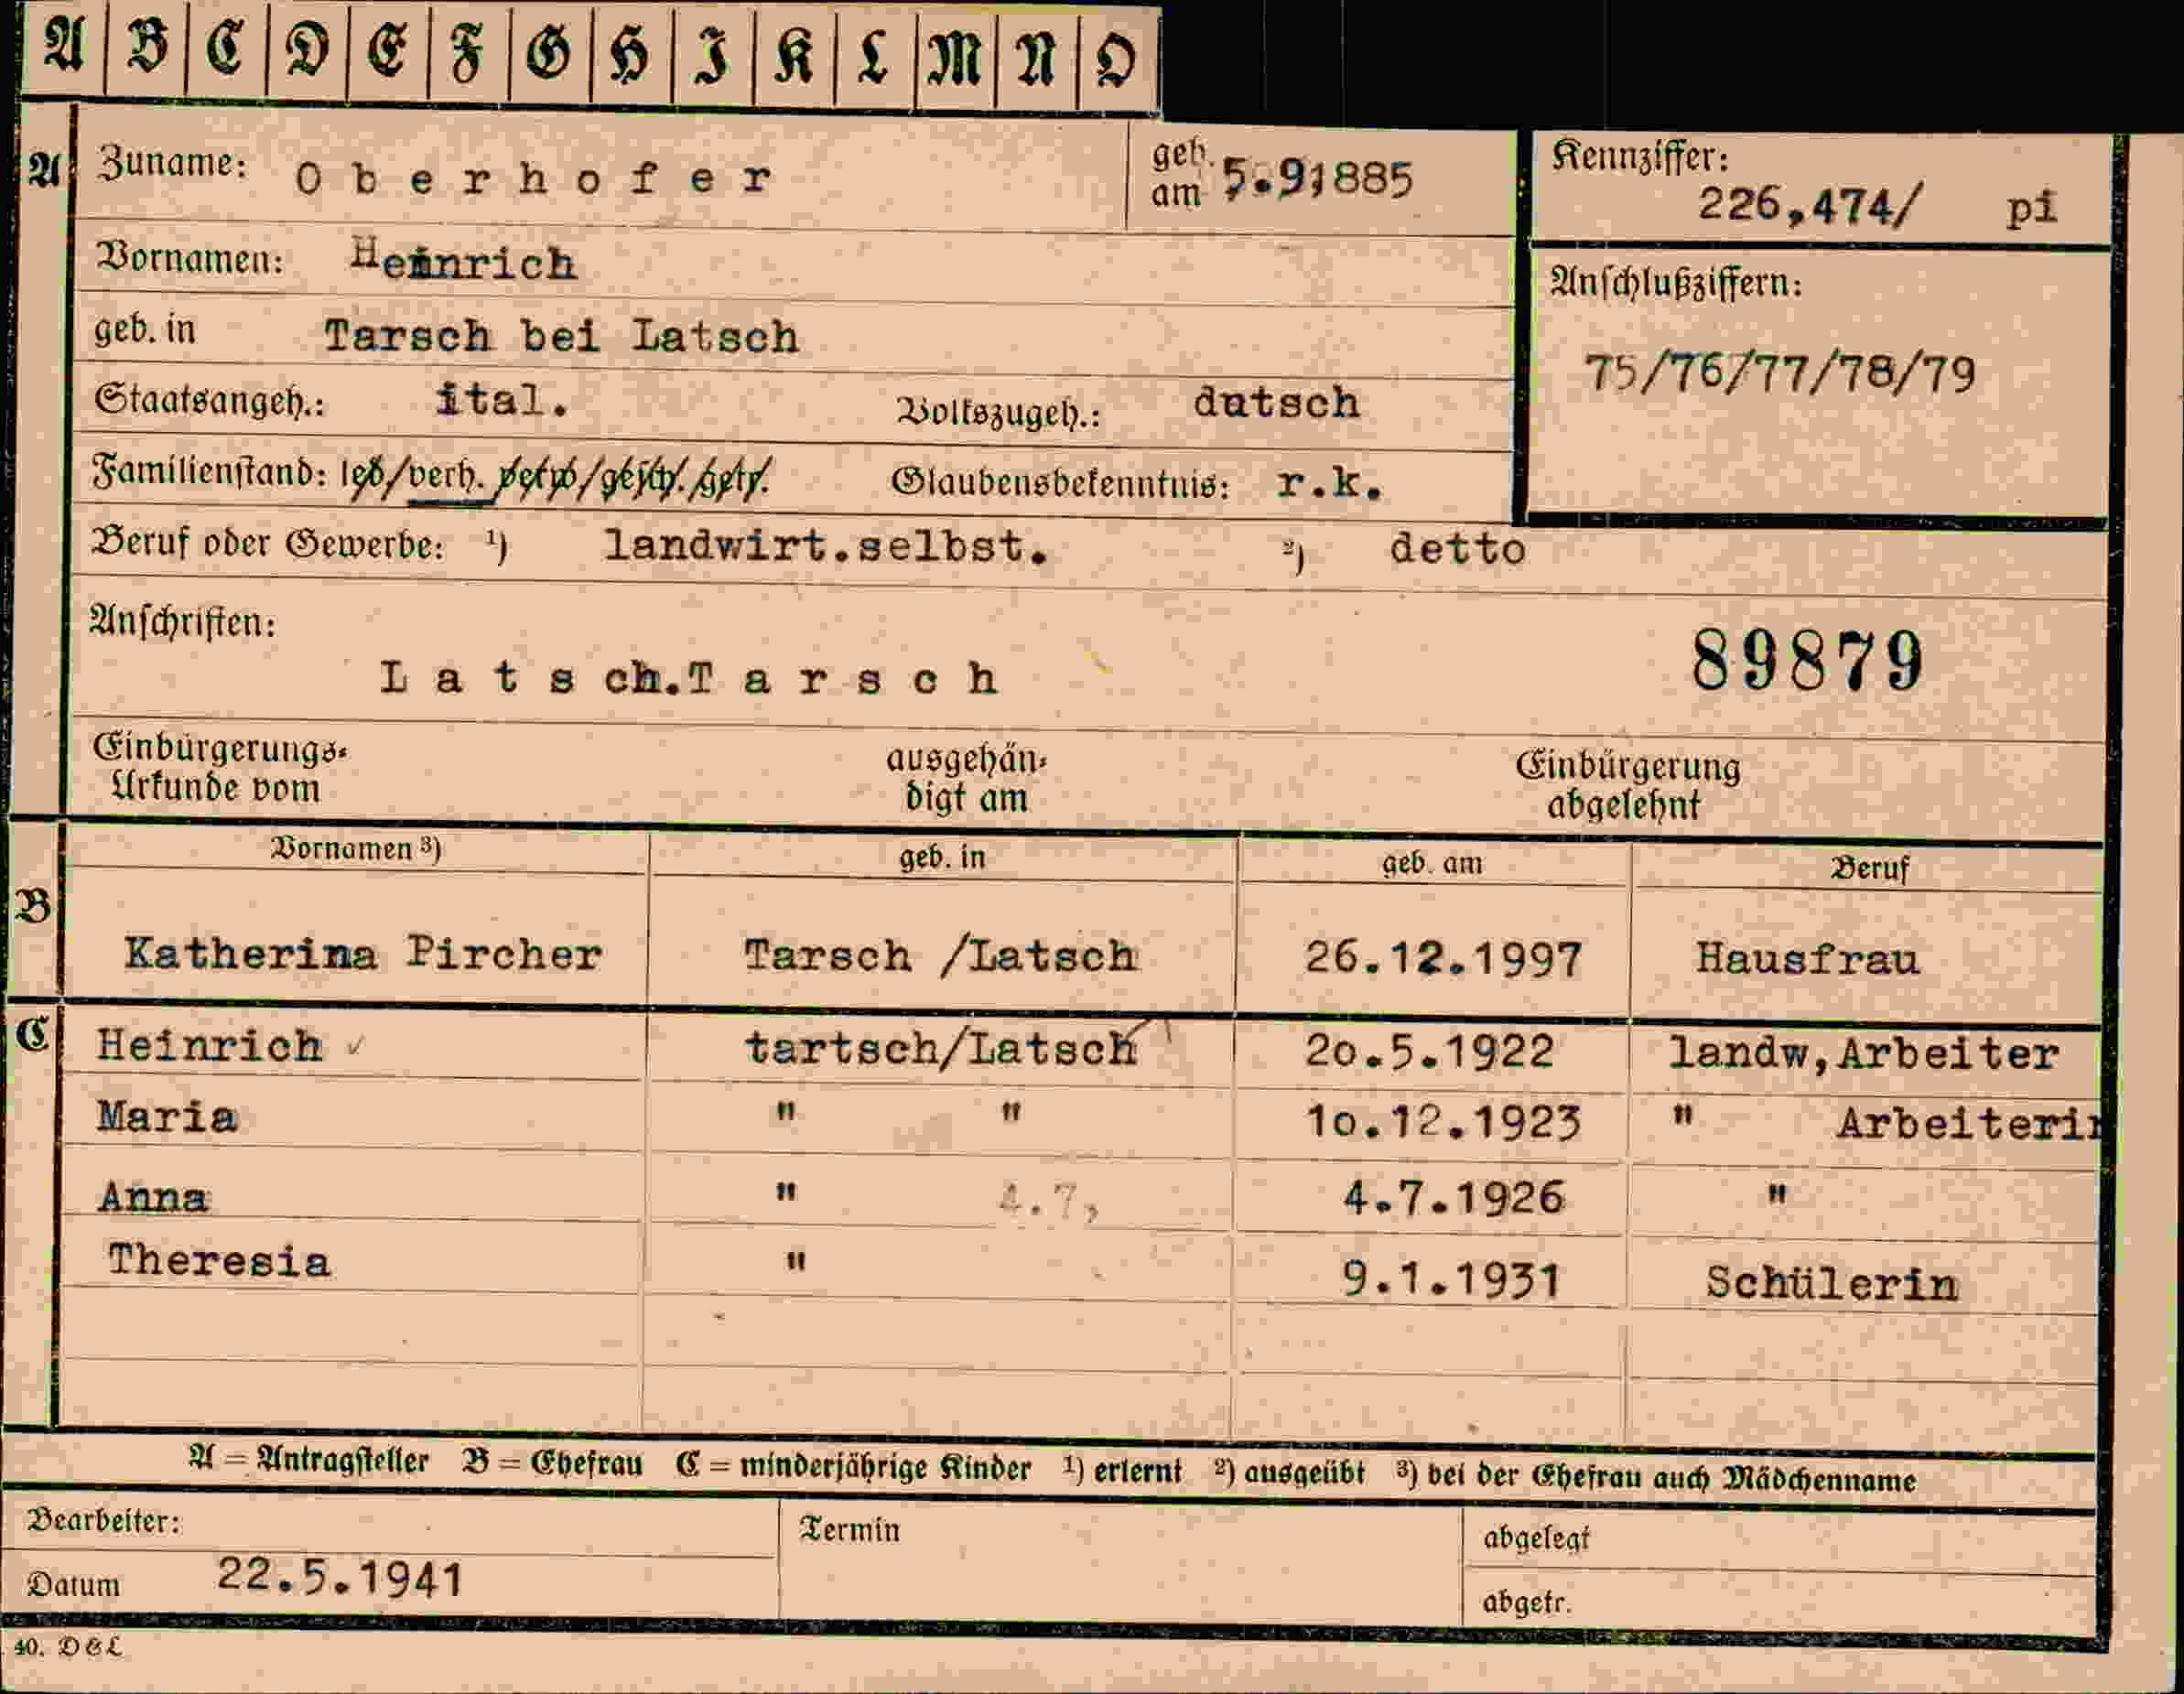 A B C D E F G H I K L M N O
A Zuname: Oberhofer geb. am 5.9,1885 Kennziffer: 226,474/ pi
Vornamen: Heinrich
Anschlußziffern:
geb. in Tarsch bei Latsch
75/76/77/78/79
Staatsangeh.: ital. Volkszugeh.: dutsch
Familienstand: led/verh. verw/gesch./getr. Glaubensbekenntnis: r.k.
Beruf oder Gewerbe: ¹) landwirt.selbst. ²) detto
Anschriften:
89879
Latsch.Tarsch
Einbürgerungs- ausgehän- Einbürgerung
Urkunde vom digt am abgelehnt
Vornamen ³) geb. in geb. am Beruf
B
Katherina Pircher Tarsch /Latsch 26.12.1997 Hausfrau
C Heinrich ✓ tartsch/Latsch 20.5.1922 landw,Arbeiter
Maria " " 10.12.1923 " Arbeiterin
Anna " 4.7, 4.7.1926 "
Theresia " 9.1.1931 Schülerin
A = Antragsteller B = Ehefrau C = minderjährige Kinder ¹) erlernt ²) ausgeübt ³) bei der Ehefrau auch Mädchenname
Bearbeiter: Termin abgelegt
Datum 22.5.1941 abgetr.
40. DEL